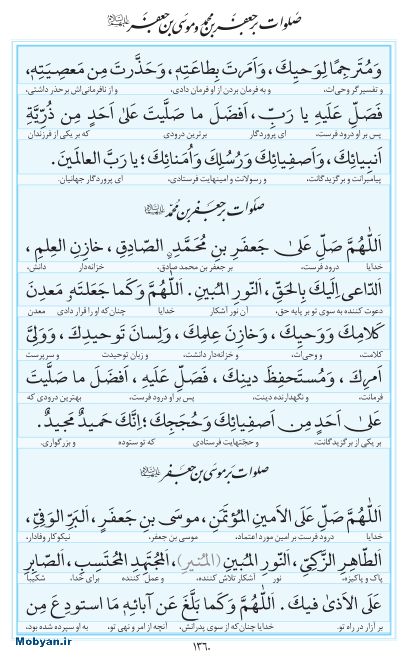 صلوات بر جعفر بن محمد و موسی بن جعفر علیهما السلام
وَمُتَرجِمًا لِوَحيِكَ، وَاَمَرتَ بِطاعَتِهِ، وَحَذَّرتَ مِن مَعصِيَتِهِ،
و تفسیرگر وحی‌ات، و به فرمان بردن از او فرمان دادی، و از نافرمانی‌اش برحذر داشتی،
فَصَلِّ عَلَيهِ يا رَبِّ، اَفضَلَ ما صَلَّيتَ عَلىٰ اَحَدٍ مِن ذُرِّيَّةِ
پس بر او درود فرست، ای پروردگار برترین درودی که بر یکی از فرزندان
اَنبِيائِكَ، وَاَصفِيائِكَ وَرُسُلِكَ وَاُمَنائِكَ؛ يا رَبَّ العالَمينَ.
پیامبرانت و برگزیدگانت، و رسولانت و امینهایت فرستادی، ای پروردگار جهانیان.
صلوات بر جعفر بن محمد علیه السلام
اَللّٰهُمَّ صَلِّ عَلىٰ جَعفَرِ بنِ مُحَمَّدٍ الصّادِقِ، خازِنِ العِلمِ،
خدایا درود فرست، بر جعفر بن محمد صادق، خزانه‌دار دانش،
اَلدّاعى اِلَيكَ بِالحَقِّ، اَلنّورِ المُبينِ. اَللّٰهُمَّ وَكَما جَعَلتَهُ مَعدِنَ
دعوت کننده به سوی تو بر پایه حق، آن نور آشکار خدایا چنان‌که او را قرار دادی معدن
كَلامِكَ وَوَحيِكَ، وَخازِنَ عِلمِكَ، وَلِسانَ تَوحيدِكَ، وَوَلِىَّ
کلامت، و وحی‌ات، و خزانه‌دار دانشت، و زبان توحیدت و سرپرست
اَمرِكَ، وَمُستَحفِظَ دينِكَ، فَصَلِّ عَلَيهِ، اَفضَلَ ما صَلَّيتَ
فرمانت، و نگهدارنده دینت، پس بر او درود فرست، بهترین درودی که
عَلىٰ اَحَدٍ مِن اَصفِيائِكَ وَحُجَجِكَ؛ اِنَّكَ حَميدٌ مَجيدٌ.
بر یکی از برگزیدگانت، و حجّتهایت فرستادی که تو ستوده و بزرگواری.
صلوات بر موسی بن جعفر علیه السلام
اَللّٰهُمَّ صَلِّ عَلَى الاَمينِ المُؤتَمَنِ، موسَى بنِ جَعفَرٍ، اَلبَرِّ الوَفِىِّ،
خدایا درود فرست بر امین مورد اعتماد، موسی بن جعفر، نیکوکار وفادار،
اَلطّاهِرِ الزَّكِىِّ، اَلنّورِ المُبينِ (المُنيرِ)، اَلمُجتَهِدِ المُحتَسِبِ، اَلصّابِرِ
پاک و پاکیزه، نور آشکار تلاش کننده، و عمل کننده برای خدا، شکیبا
عَلَى الاَذىٰ فيكَ. اَللّٰهُمَّ وَكَما بَلَّغَ عَن آبائِهِ مَا استودِعَ مِن
بر آزار در راه تو. خدایا چنان‌که از سوی پدرانش، آنچه از امر و نهی تو، به او سپرده شده بود،
١٣٦٠
Mobyan.ir